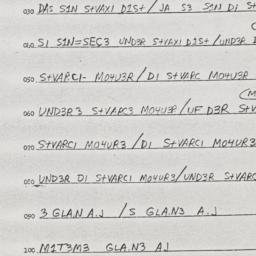 030 DAS S1N S+VAX1 D1S+/JA S3 S1N D1 S+
040 S1 S1N=SEC3 UND3R S+VAX1 D1S+/UND3R D
050 S+VARC1- MO4U3R/D1 S+VARC MO4U3R
060 UND3R3 S+VARC3 MO4U3R/UF D3R S+V
070 S+VARC1 MO4UR3/D1 S+VARC1 MO4UR3
080 UND3R D1 S+VARC1 MO4UR3/UND3R S+VARC
090 3 GLAN A.J /S GLA.N3 A.J
100 M1T3M3 GLA.N3 AJ